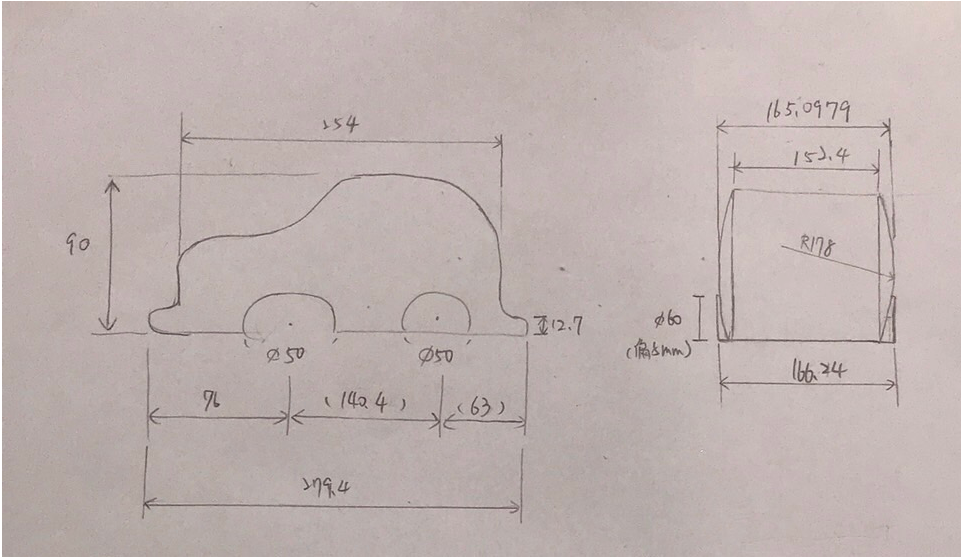 254
90
12.7
⌀50
⌀50
76
(140.4)
(63)
279.4
165.0979
152.4
R178
⌀60
(偏5mm)
166.24